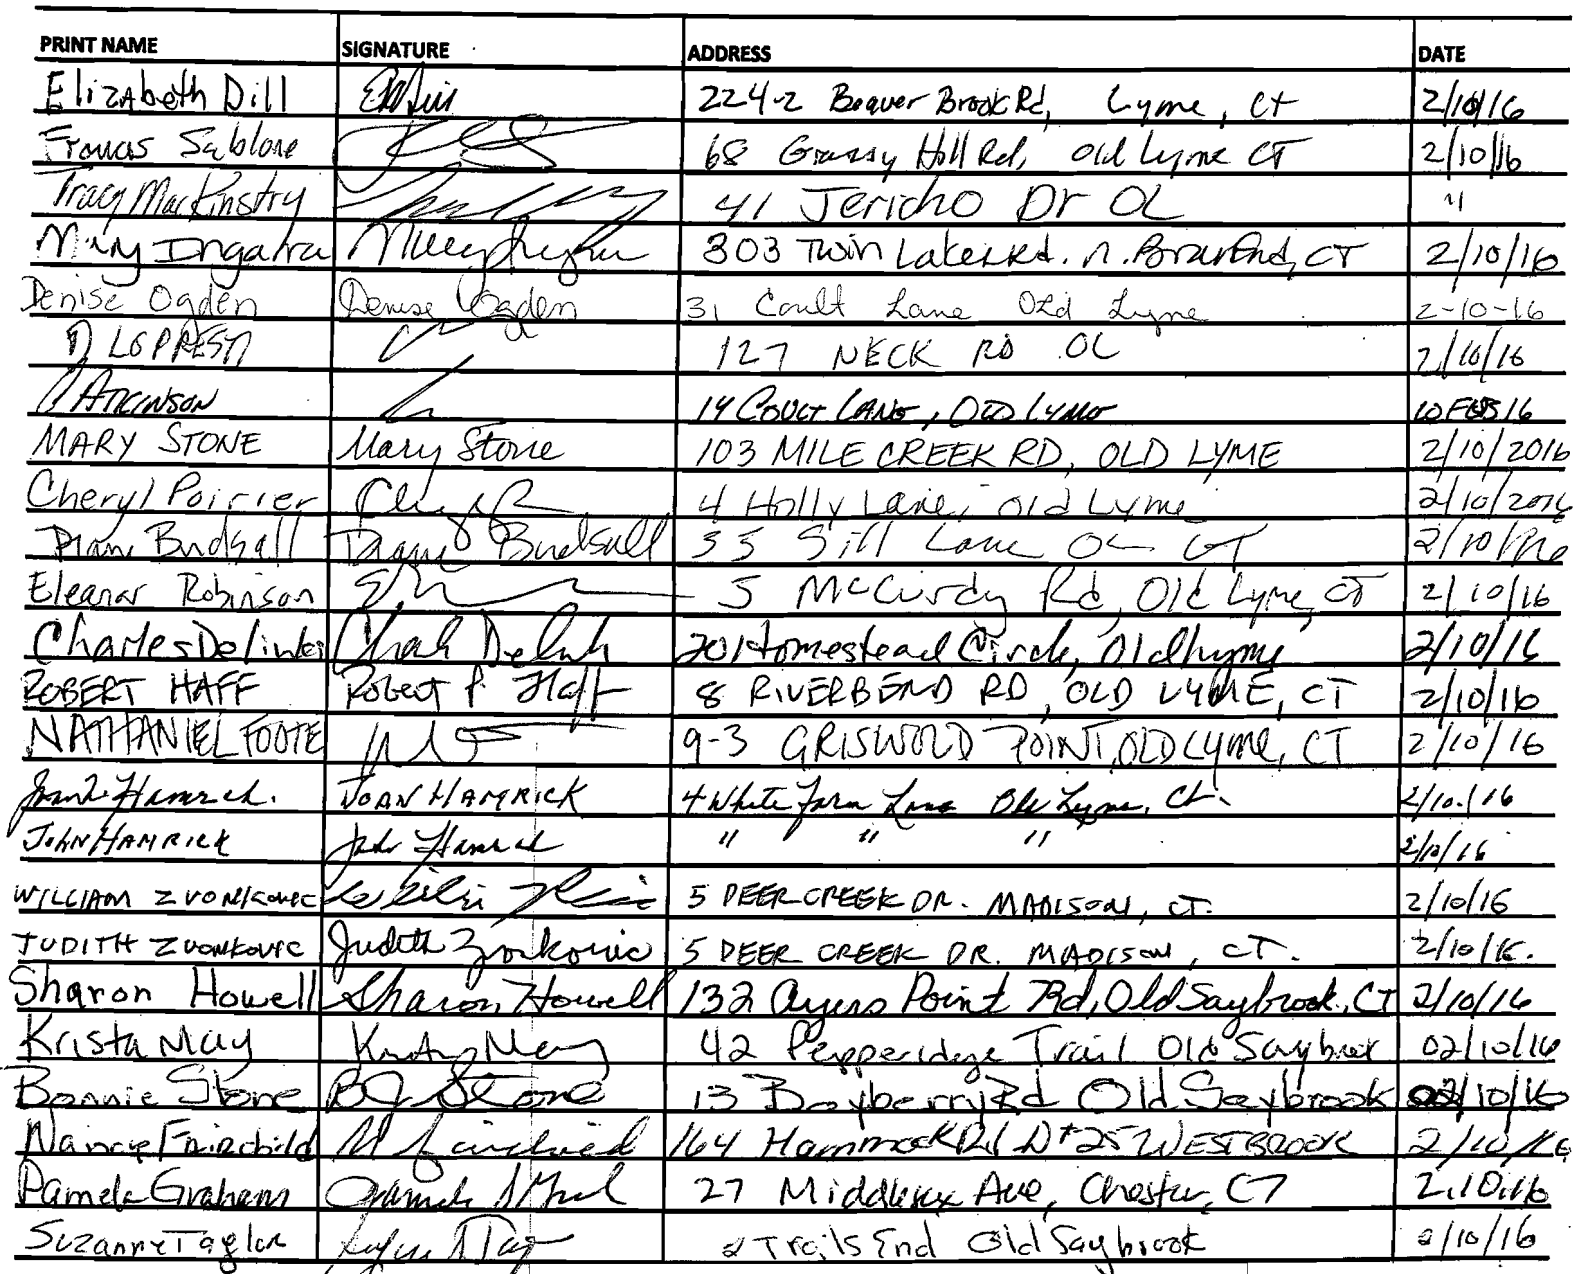 PRINT NAME SIGNATURE ADDRESS DATE
Elizabeth Dill 224-2 Beaver Brook Rd, Lyme, CT 2/10/16
Francis Sablone 68 Grassy Hill Rd, Old Lyme CT 2/10/16
Tracy MacKinstry 41 Jericho Dr OL "
Mary Ingarra 303 Twin Lakes Rd. N. Branford, CT 2/10/16
Denise Ogden Denise Ogden 31 Coult Lane Old Lyme 2-10-16
127 NECK RD OL 2/10/16
ATKINSON 14 COULT LANE, OLD LYME 10 FEB 16
MARY STONE Mary Stone 103 MILE CREEK RD, OLD LYME 2/10/2016
Cheryl Poirier 4 Holly Lane, Old Lyme 2/10/2016
Diane Budsall Diane Budsall 33 Sill Lane OL CT 2/10/16
Eleanor Robinson 5 McCurdy Rd, Old Lyme, CT 2/10/16
Charles 20 Homestead Circle, Old Lyme 2/10/16
ROBERT HAFF Robert P. Haff 8 RIVERBEND RD, OLD LYME, CT 2/10/16
NATHANIEL FOOTE 9-3 GRISWOLD POINT, OLD LYME, CT 2/10/16
Joan Hamrick. JOAN HAMRICK 4 White Farm Lane Old Lyme, Ct. 2/10/16
JOHN HAMRICK John Hamrick " " " 2/10/16
WILLIAM ZVONKOVIC 5 DEER CREEK DR. MADISON, CT. 2/10/16
JUDITH ZVONKOVIC Judith Zvonkovic 5 DEER CREEK DR. MADISON, CT. 2/10/16.
Sharon Howell Sharon Howell 132 Ayers Point Rd, Old Saybrook, CT 2/10/16
Krista May Krista May 42 Pepperidge Trail Old Saybrook 02/10/16
Bonnie Stone BJ Stone 13 Bayberry Rd Old Saybrook 02/10/16
Nancy Fairchild N Fairchild 164 Hammock Rd N #25 WESTBROOK 2/10/16
Pamela Graham 27 Middlesex Ave, Chester, CT 2.10.16
Suzanne Taylor 2 Trails End Old Saybrook 2/10/16